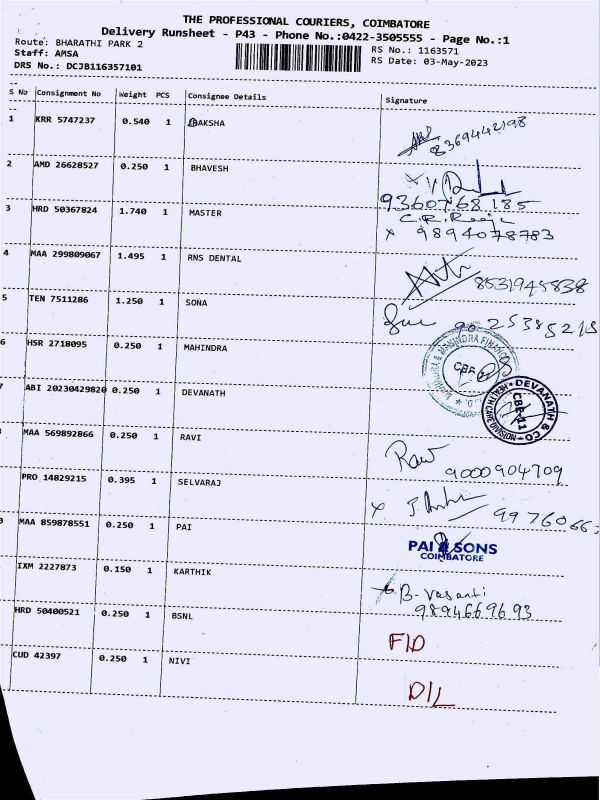 THE PROFESSIONAL COURIERS, COIMBATORE
Delivery Runsheet - P43 - Phone No.:0422-3505555 - Page No.:1
Route: BHARATHI PARK 2
RS No.: 1163571
Staff: AMSA
RS Date: 03-May-2023
DRS No.: DCJB116357101
S No Consignment No Weight PCS Consignee Details Signature
1 KRR 5747237 0.540 1 BAKSHA 8369442198
2 AMD 26628527 0.250 1 BHAVESH
9360768185
3 HRD 50367824 1.740 1 MASTER
x 9894078783
4 MAA 299809067 1.495 1 RNS DENTAL 8531945838
5 TEN 7511286 1.250 1 SONA
6 HSR 2718095 0.250 1 MAHINDRA
ABI 20230429820 0.250 1 DEVANATH DEVANATH & CO HEALTH CARE DIVISION CBE-11
MAA 569892866 0.250 1 RAVI Ravi 9000904709
PRO 14829215 0.395 1 SELVARAJ x
MAA 859878551 0.250 1 PAI PAI & SONS
COIMBATORE
IXM 2227873 0.150 1 KARTHIK B. Vasanti
9894669693
HRD 50400521 0.250 1 BSNL F/D
CUD 42397 0.250 1 NIVI D/L